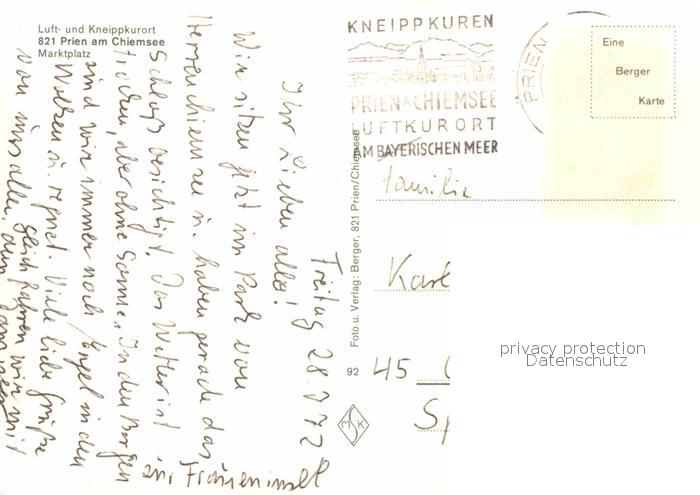 Luft- und Kneippkurort
821 Prien am Chiemsee
Marktplatz
KNEIPPKUREN
PRIEN A CHIEMSEE
LUFTKURORT
AM BAYERISCHEN MEER
PRIEN
Eine
Berger
Karte
Freitag 28. 7. 72
Ihr Lieben alle!
Wir sitzen jetzt im Park von
Herrenchiemsee u. haben gerade das
Schloß besichtigt. Das Wetter ist
trocken, aber ohne Sonne. In den Bergen
sind wir immer noch hängt in den
Wolken u. regnet. Viele liebe Grüße
von uns allen.
Gleich fahren wir mit
dem
zur Fraueninsel
Foto u. Verlag: Berger, 821 Prien/Chiemsee
92
MSK
Familie
Karl
45
Sp
privacy protection
Datenschutz